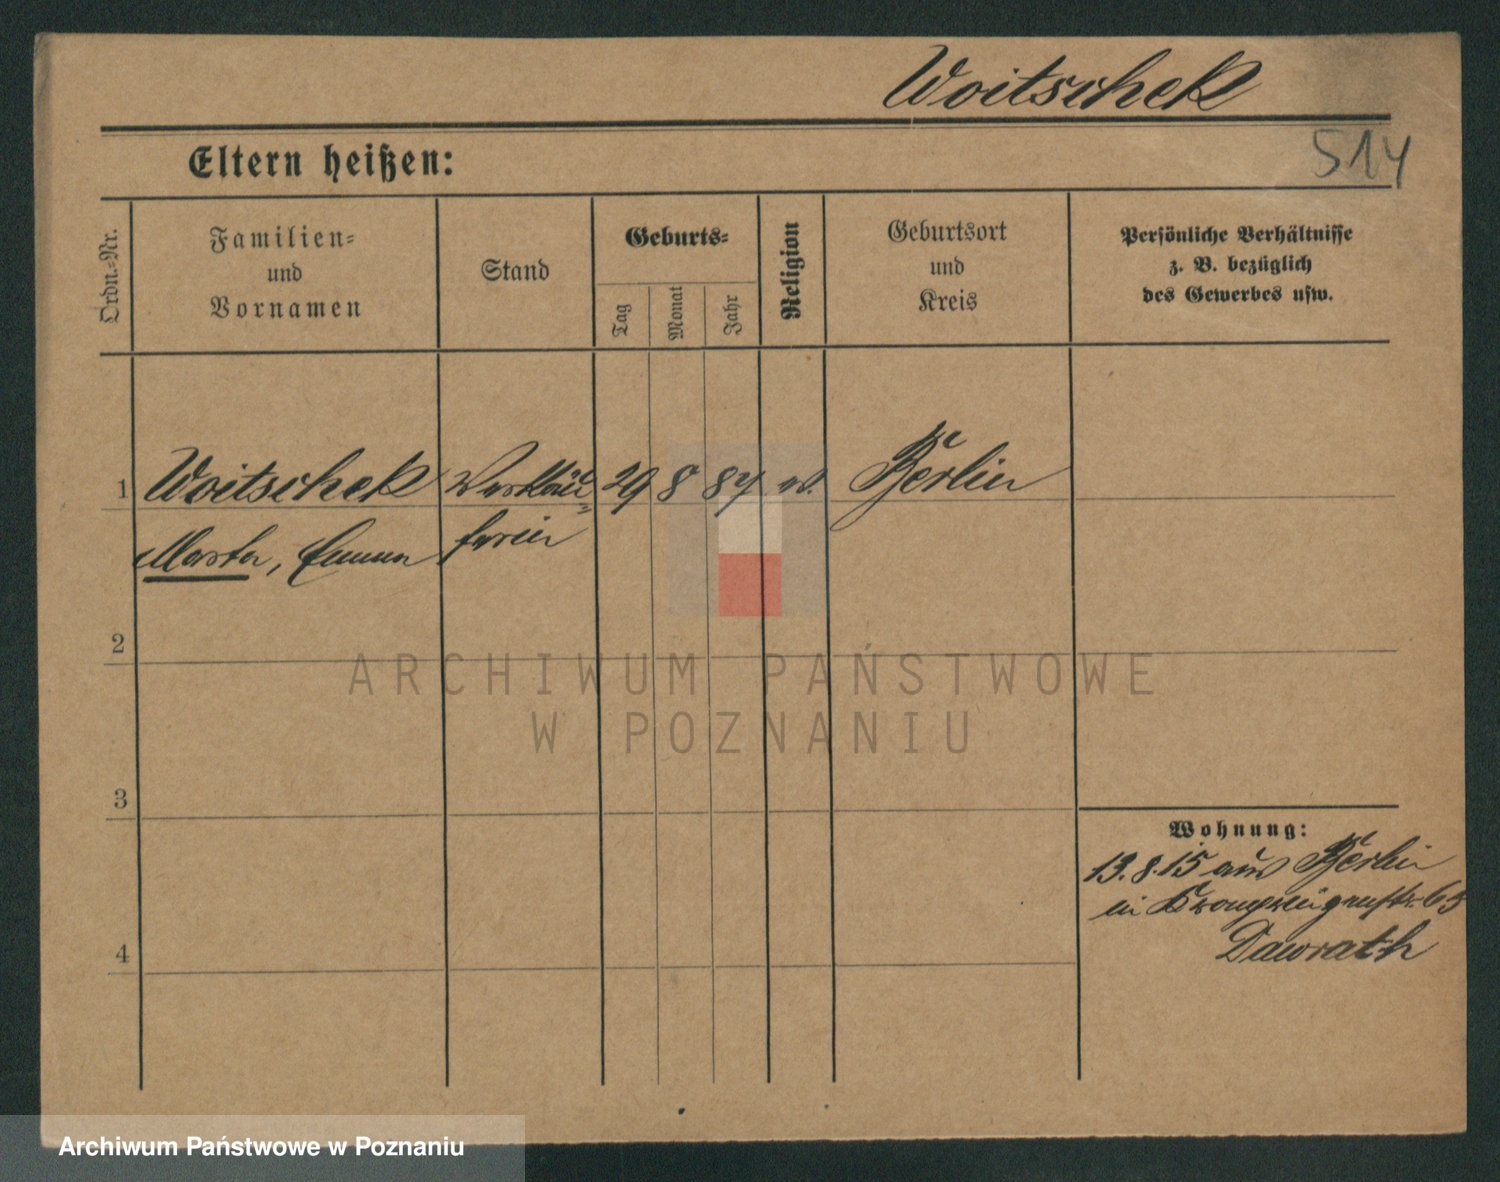 Woitschek
514
Eltern heißen:
Ordn.-Nr.
Familien-
und
Vornamen
Stand
Geburts-
Tag
Monat
Jahr
Religion
Geburtsort
und
Kreis
Persönliche Verhältnisse
z. B. bezüglich
des Gewerbes usw.
1 Woitschek Verkäu= 29 8 84 ev. Berlin
Marta, Emma ferin
2
3
4
Wohnung:
13.8.15 aus Berlin
in Kronprinzenstr. 65
Dawrath
ARCHIWUM PAŃSTWOWE
W POZNANIU
Archiwum Państwowe w Poznaniu